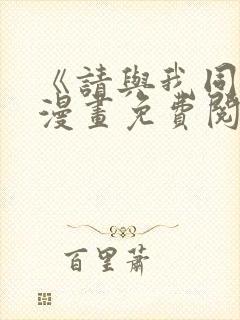 《請與我同
漫畫免費閱
百里蕭